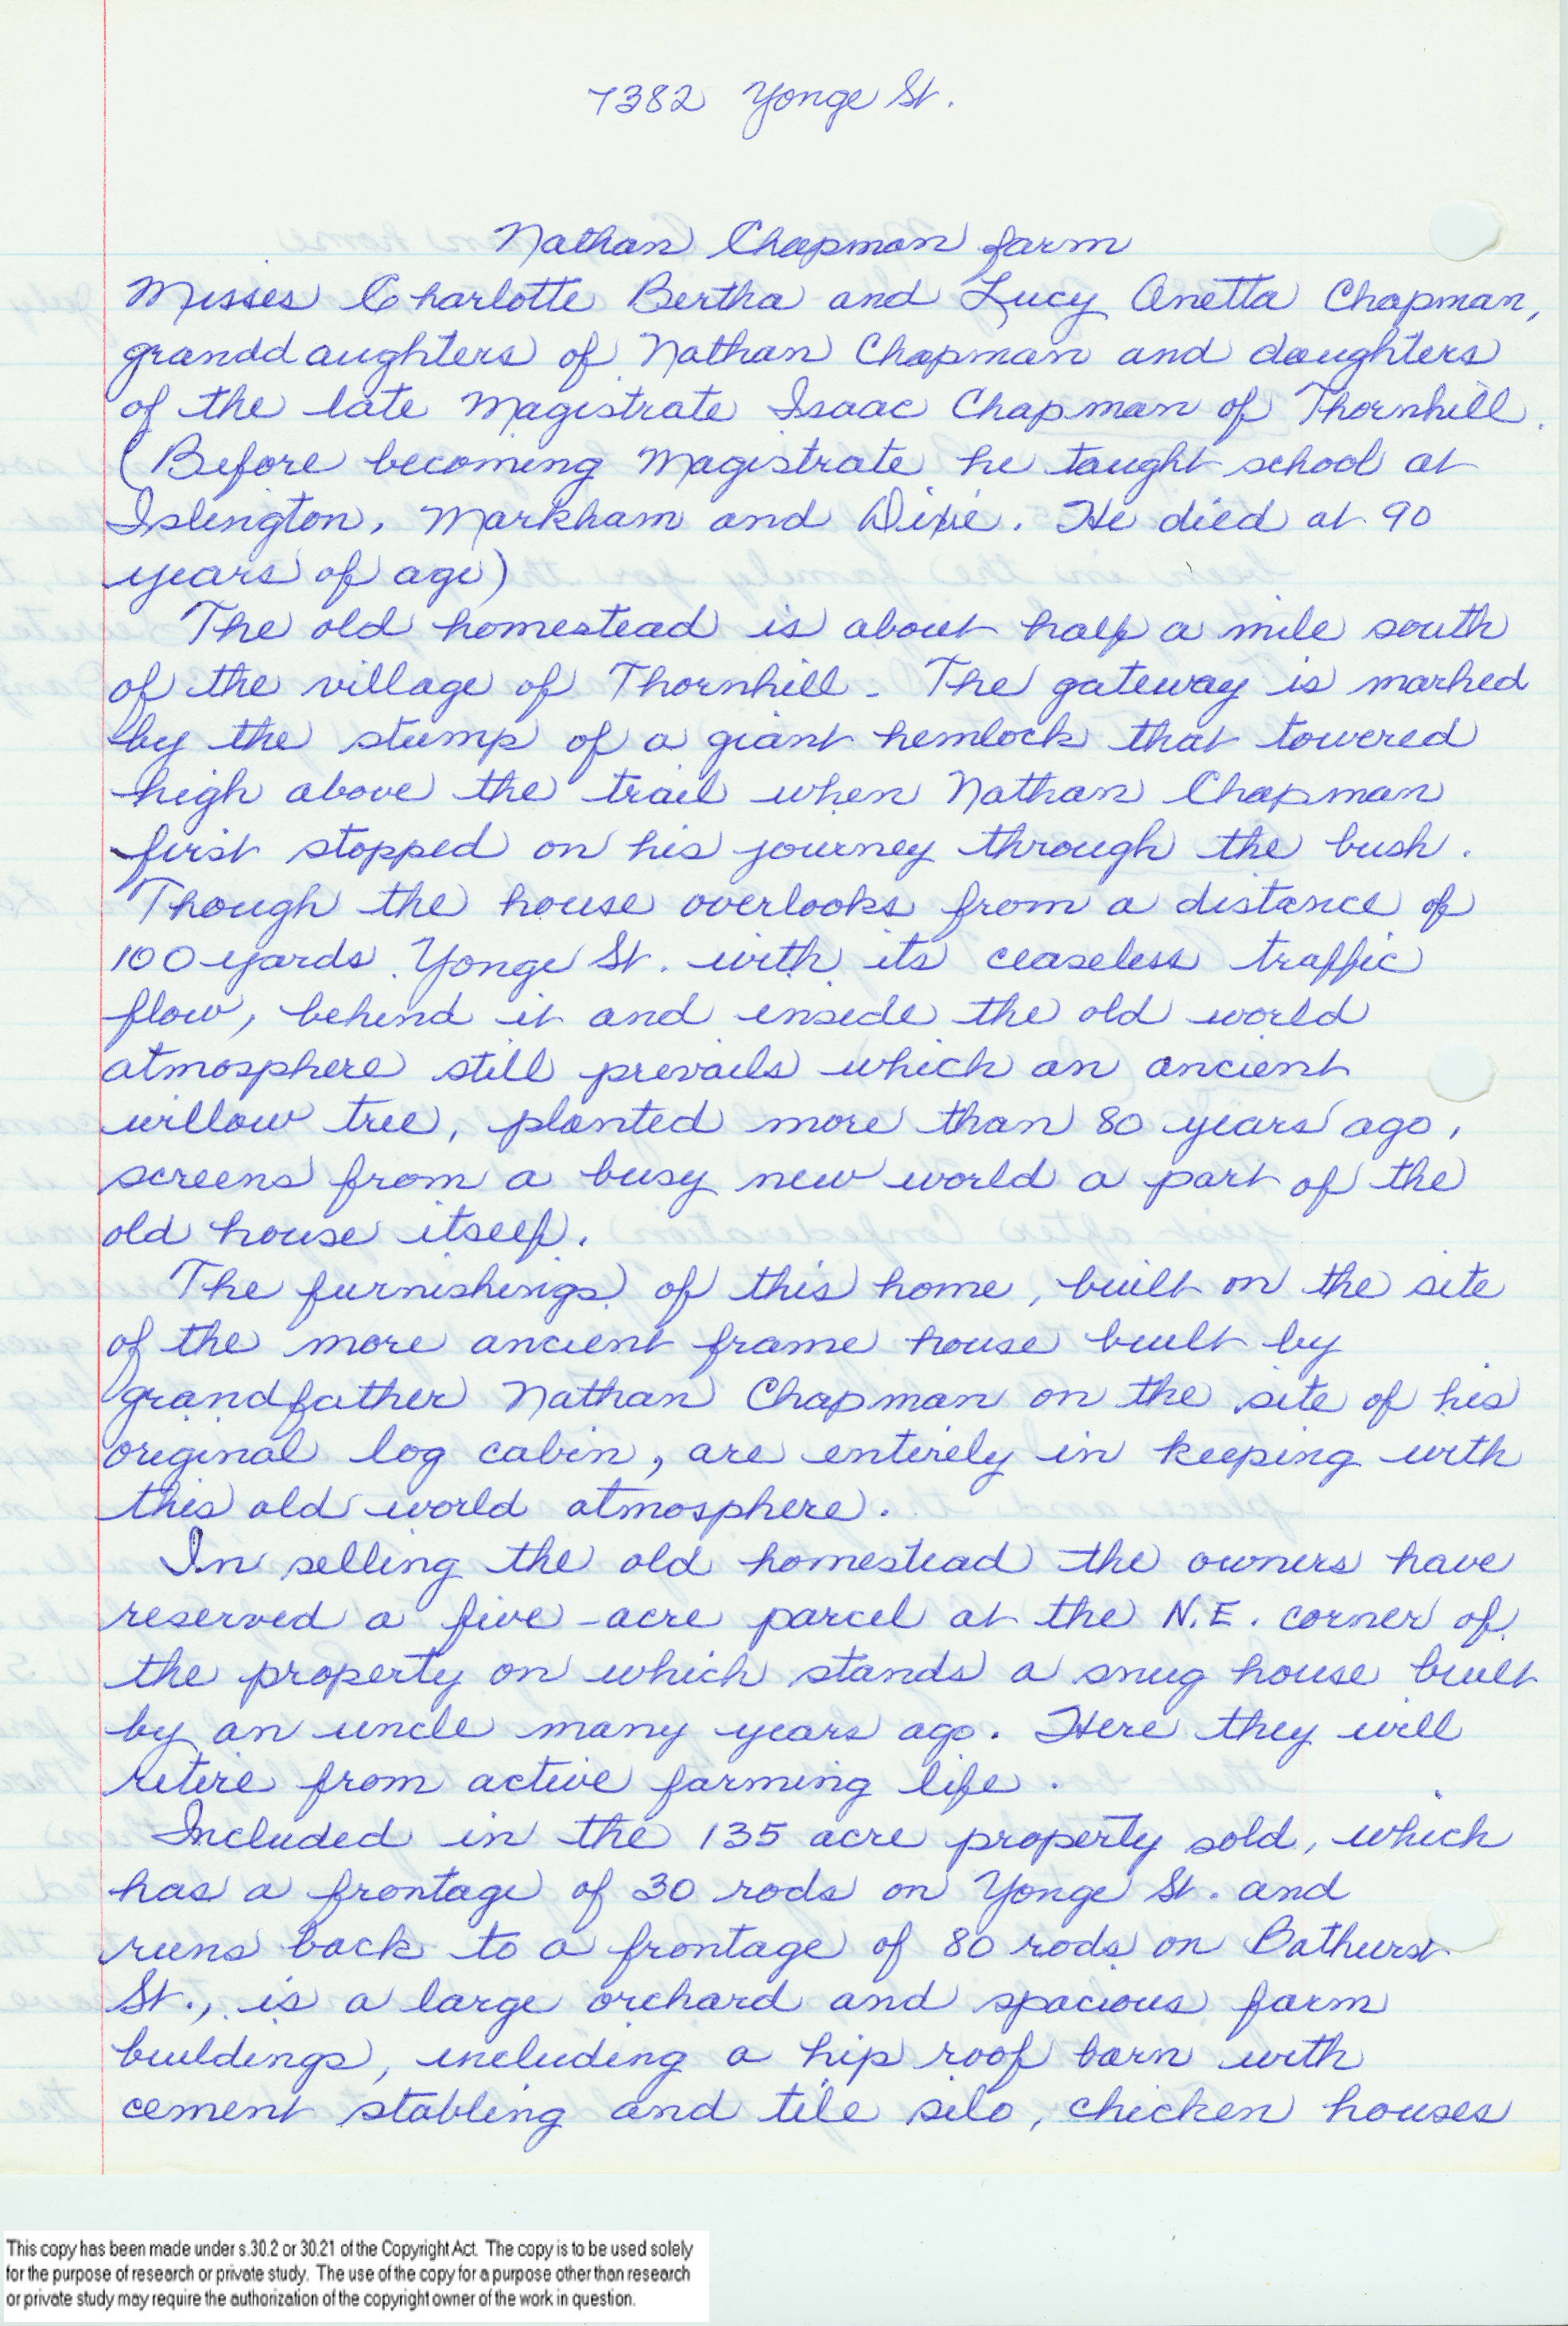 7382 Yonge St.
Nathan Chapman farm
Misses Charlotte Bertha and Lucy Anetta Chapman,
granddaughters of Nathan Chapman and daughters
of the late Magistrate Isaac Chapman of Thornhill.
(Before becoming Magistrate he taught school at
Islington, Markham and Dixie. He died at 90
years of age)
The old homestead is about half a mile south
of the village of Thornhill. The gateway is marked
by the stump of a giant hemlock that towered
high above the trail when Nathan Chapman
first stopped on his journey through the bush.
Though the house overlooks from a distance of
100 yards Yonge St. with its ceaseless traffic
flow, behind it and inside the old world
atmosphere still prevails which an ancient
willow tree, planted more than 80 years ago,
screens from a busy new world a part of the
old house itself.
The furnishings of this home, built on the site
of the more ancient frame house built by
grandfather Nathan Chapman on the site of his
original log cabin, are entirely in keeping with
this old world atmosphere.
In selling the old homestead the owners have
reserved a five-acre parcel at the N.E. corner of
the property on which stands a snug house built
by an uncle many years ago. Here they will
retire from active farming life.
Included in the 135 acre property sold, which
has a frontage of 30 rods on Yonge St. and
runs back to a frontage of 80 rods on Bathurst
St., is a large orchard and spacious farm
buildings, including a hip roof barn with
cement stabling and tile silo, chicken houses
This copy has been made under s.30.2 or 30.21 of the Copyright Act. The copy is to be used solely
for the purpose of research or private study. The use of the copy for a purpose other than research
or private study may require the authorization of the copyright owner of the work in question.